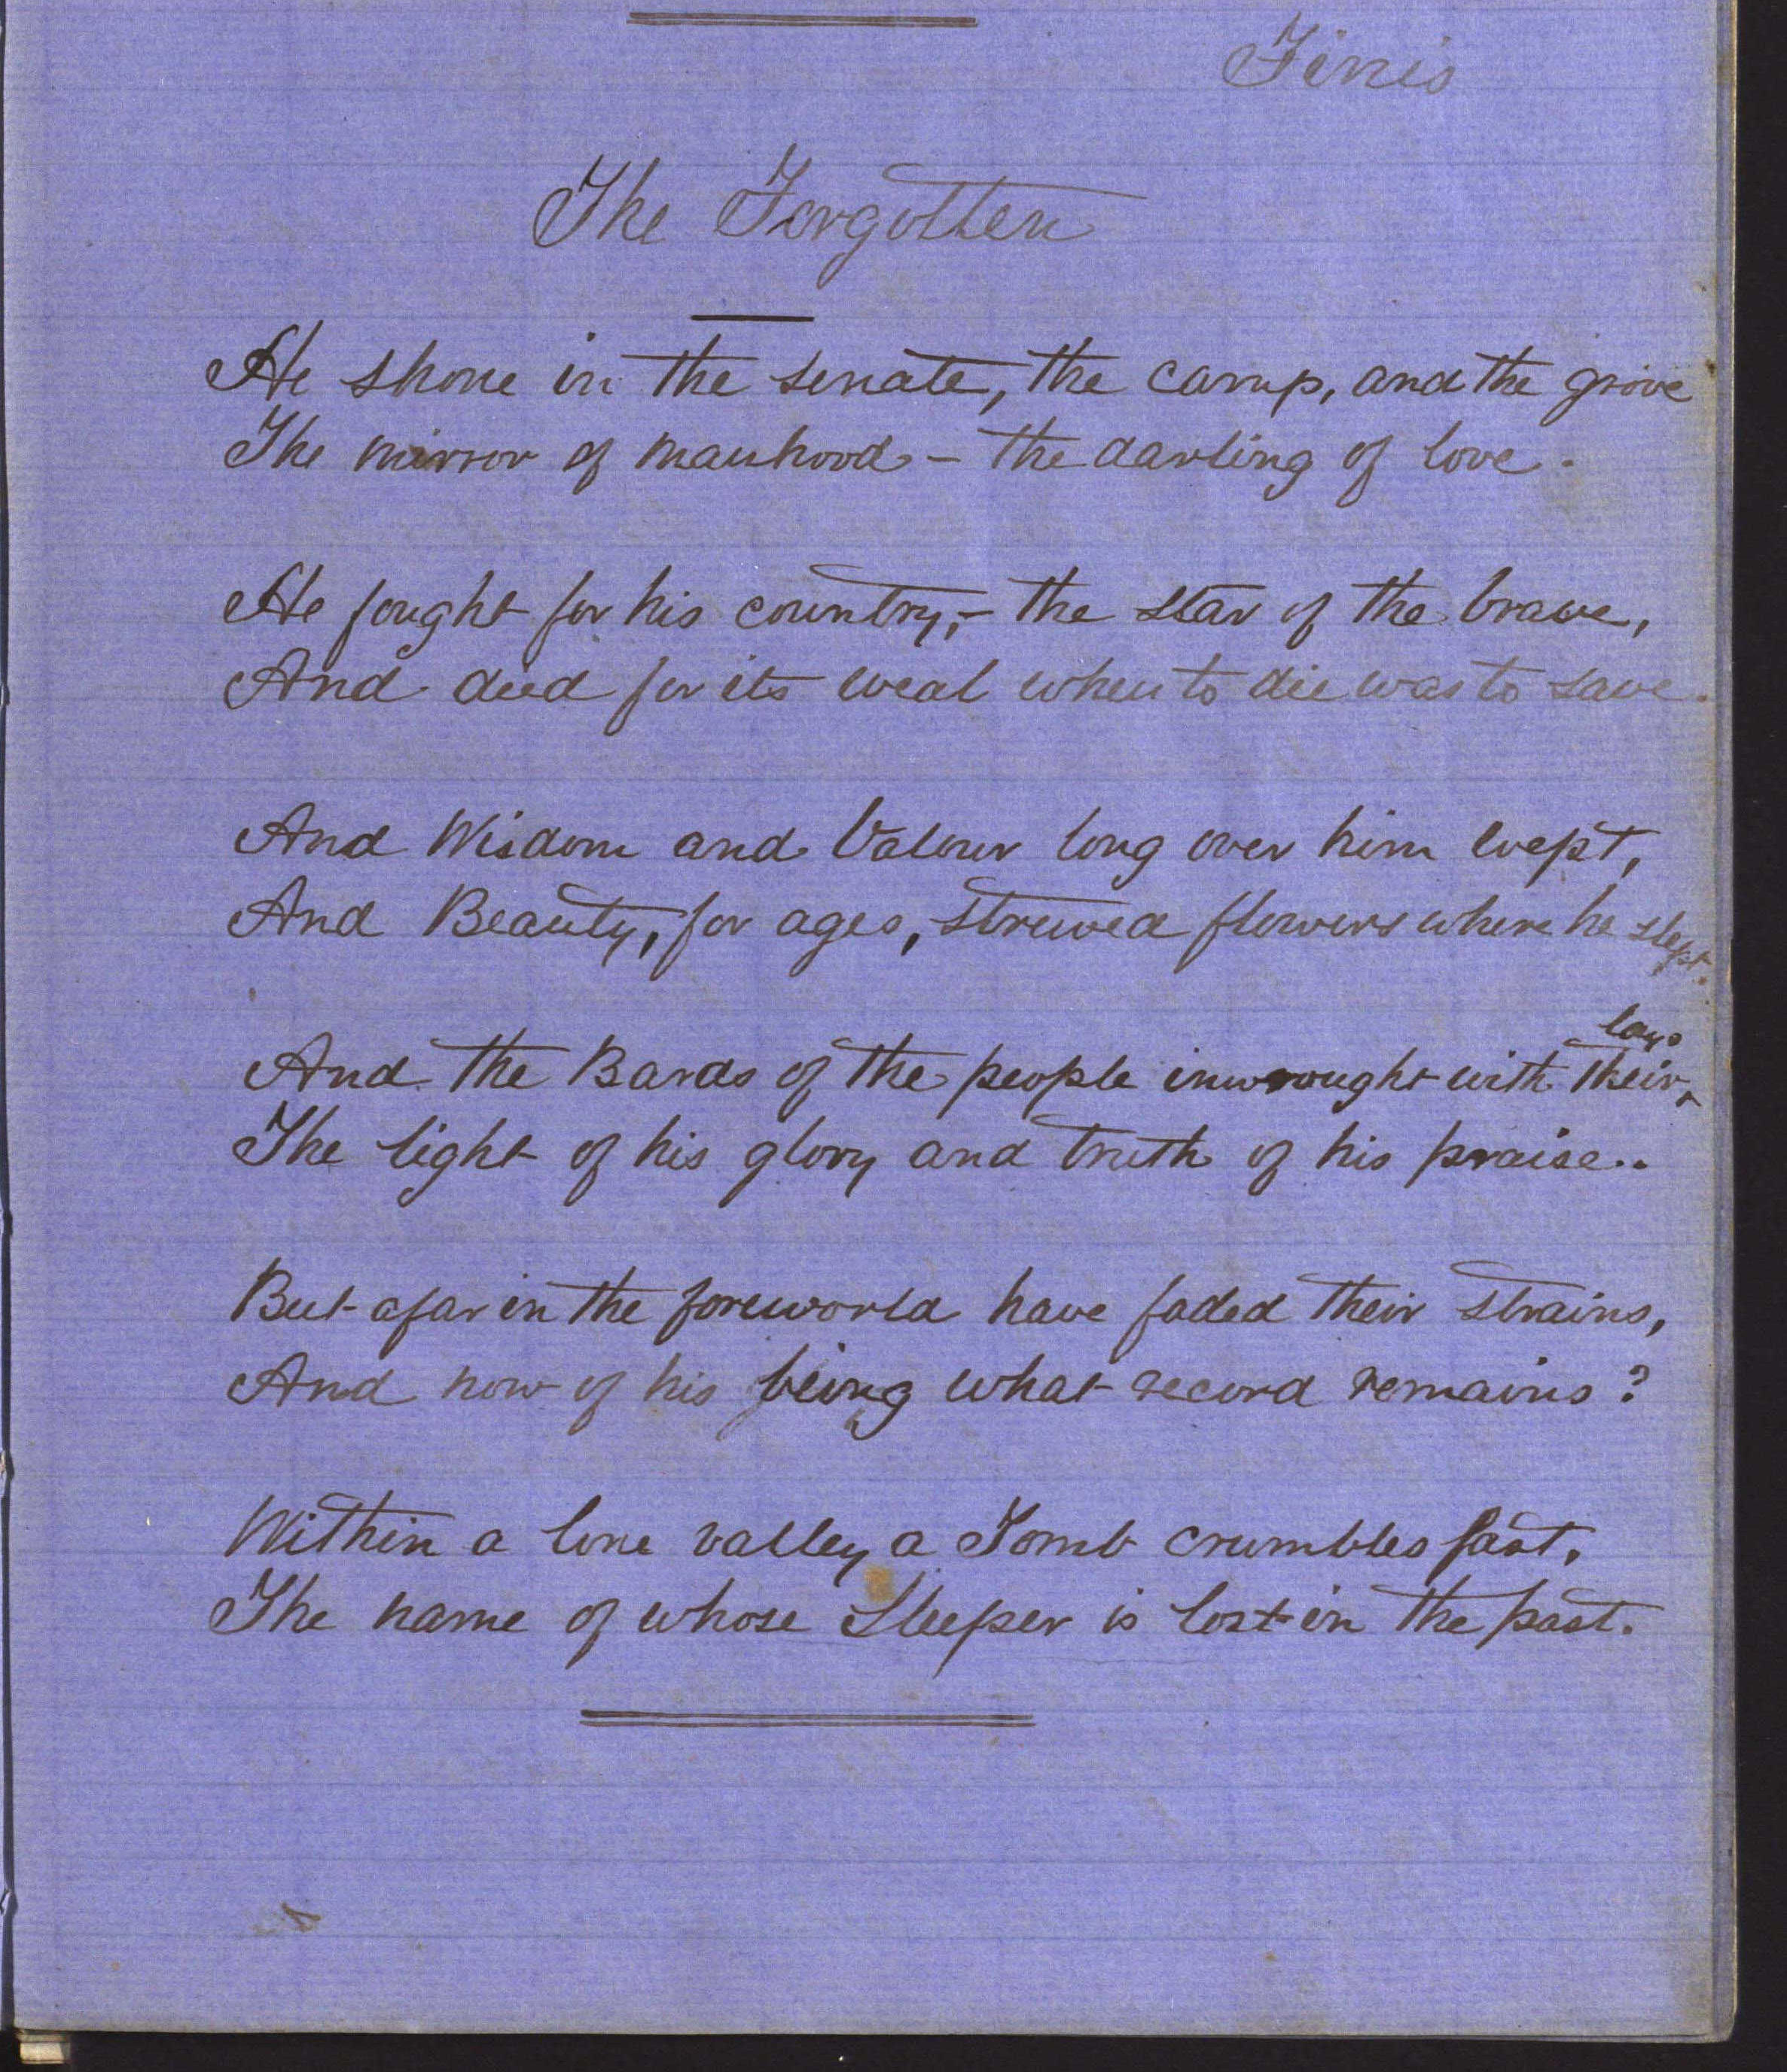 Finis
The Forgotten
He shone in the senate, the camp, and the grove
The mirror of manhood – the darling of love.
He fought for his country, – the star of the brave,
And died for its weal when to die was to save.
And Wisdom and Valour long over him wept,
And Beauty, for ages, strewed flowers where he slept.
And the Bards of the people inwrought with their lays
The light of his glory and truth of his praise..
But afar in the foreworld have faded their strains,
And now of his being what record remains?
Within a lone valley a Tomb crumbles fast,
The name of whose Sleeper is lost in the past.